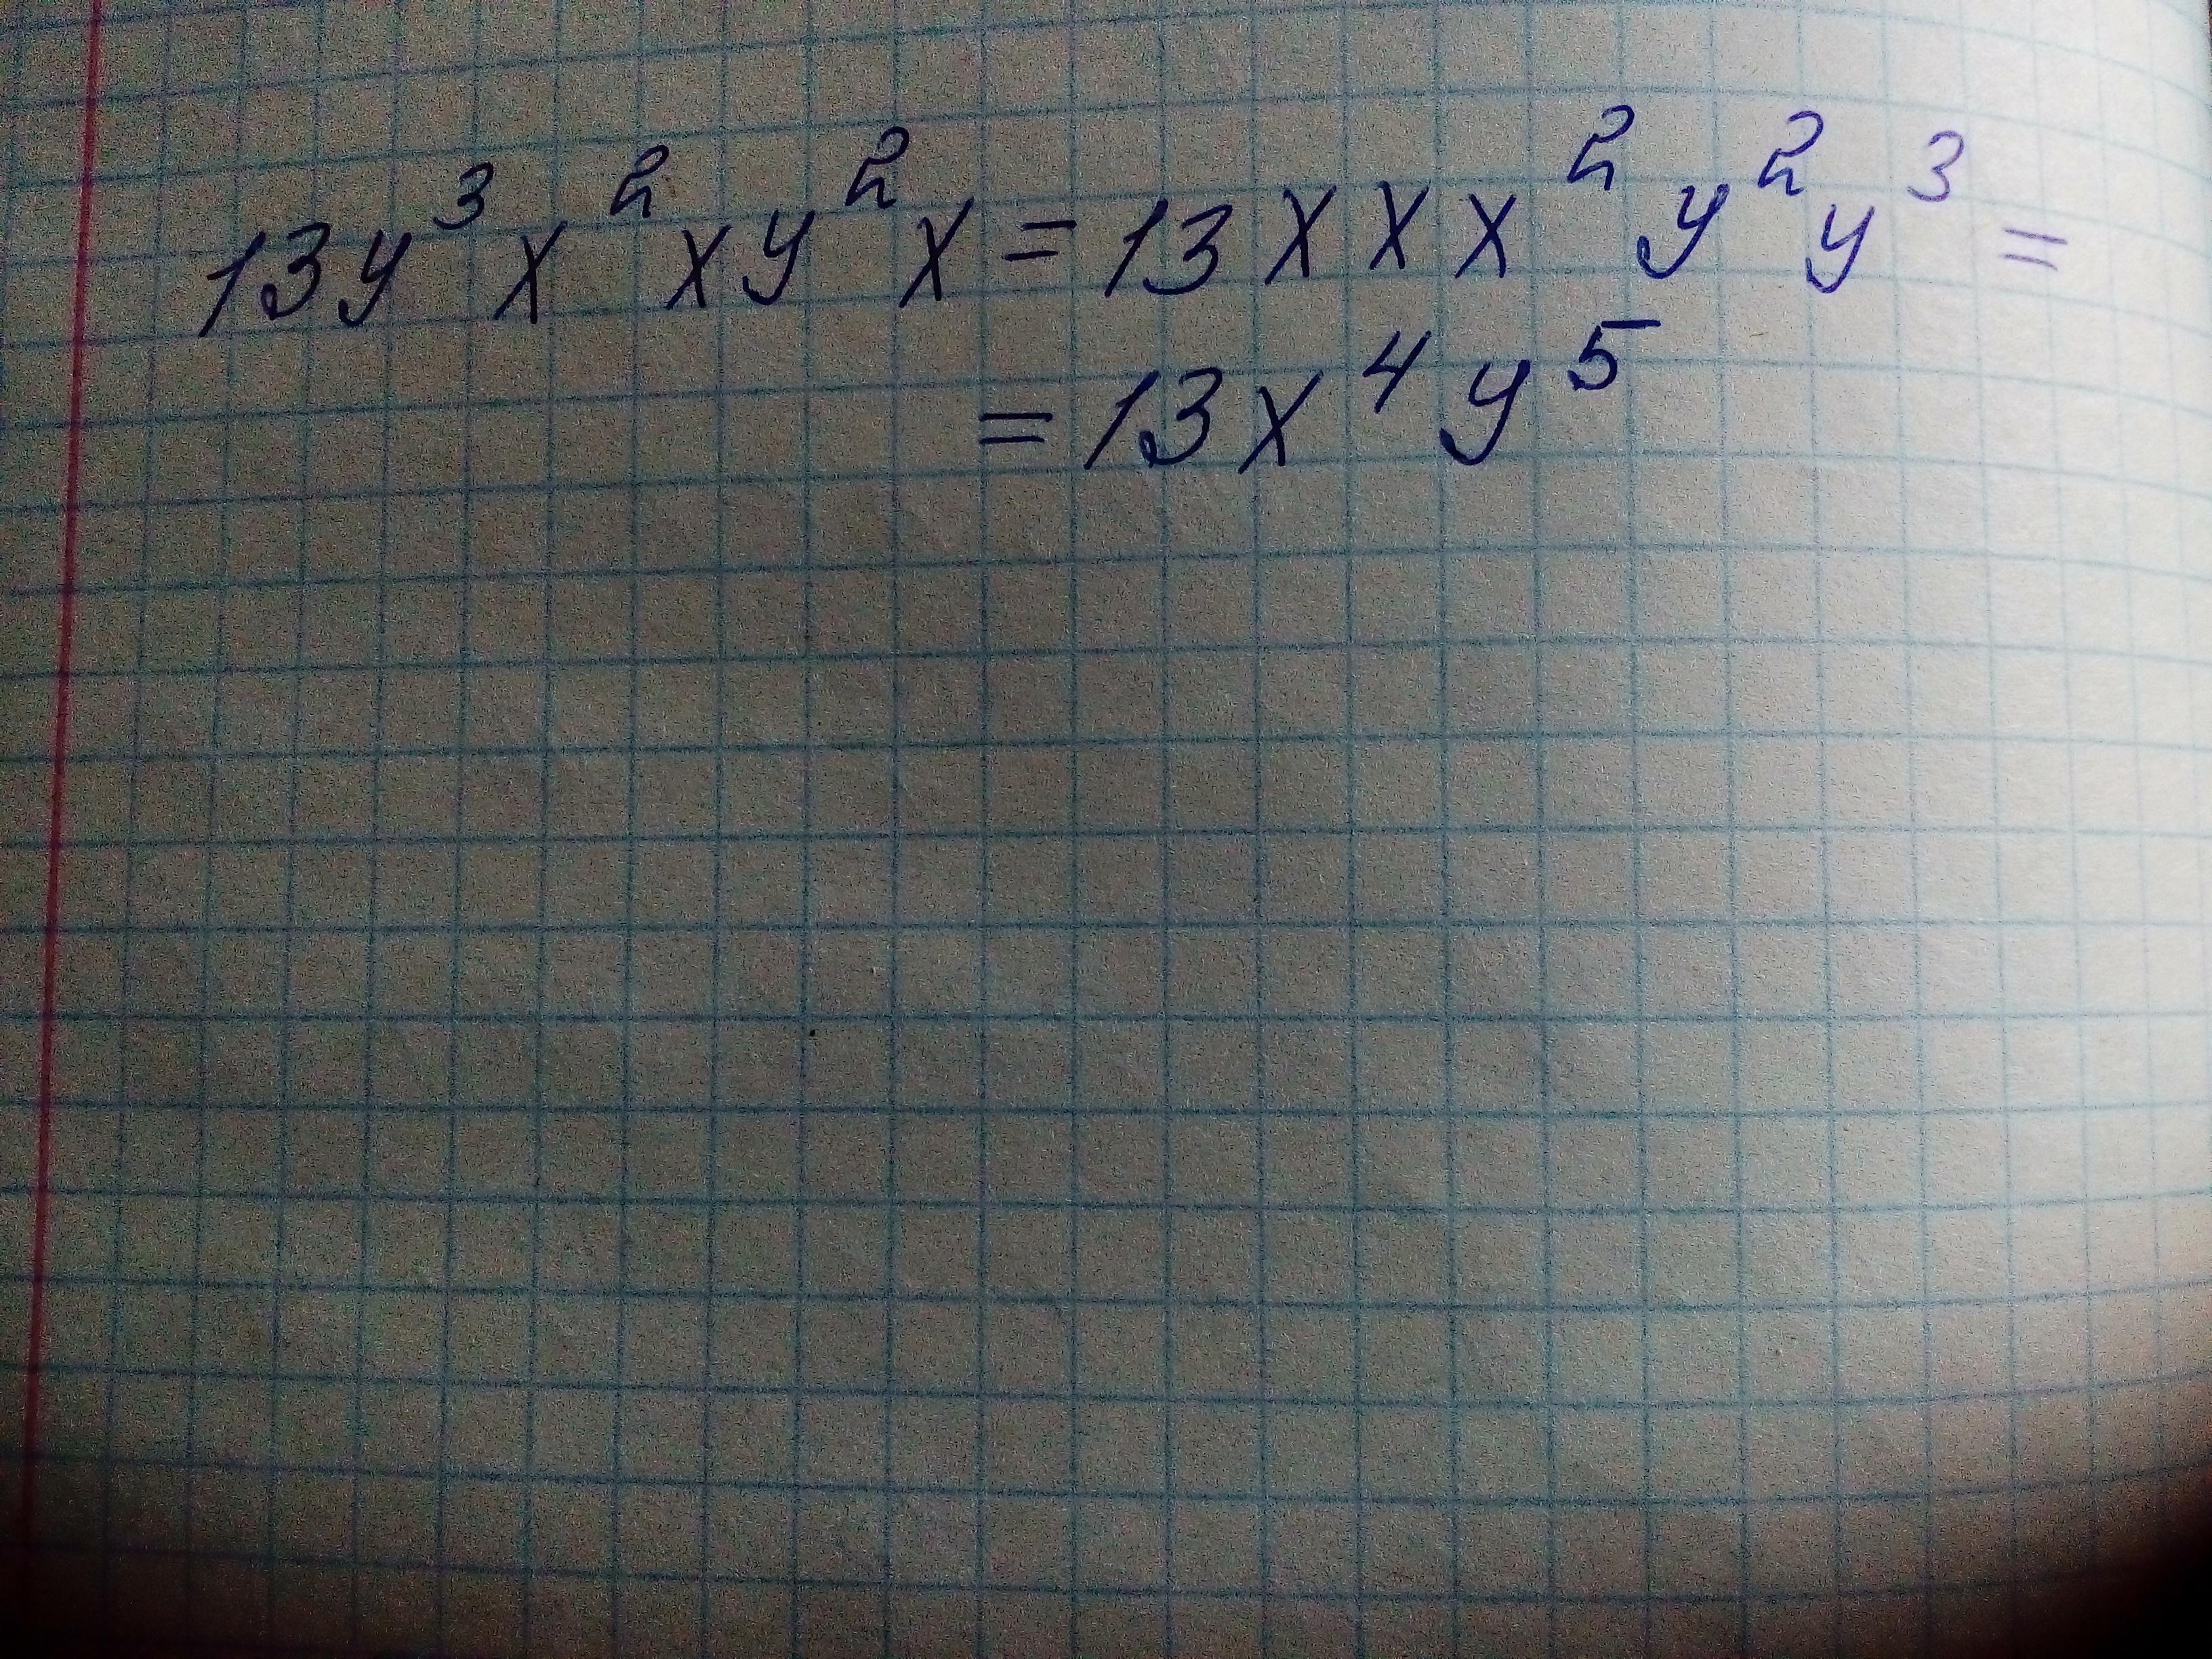 13y³x²xy²x = 13xxx²y²y³ =
= 13x⁴y⁵